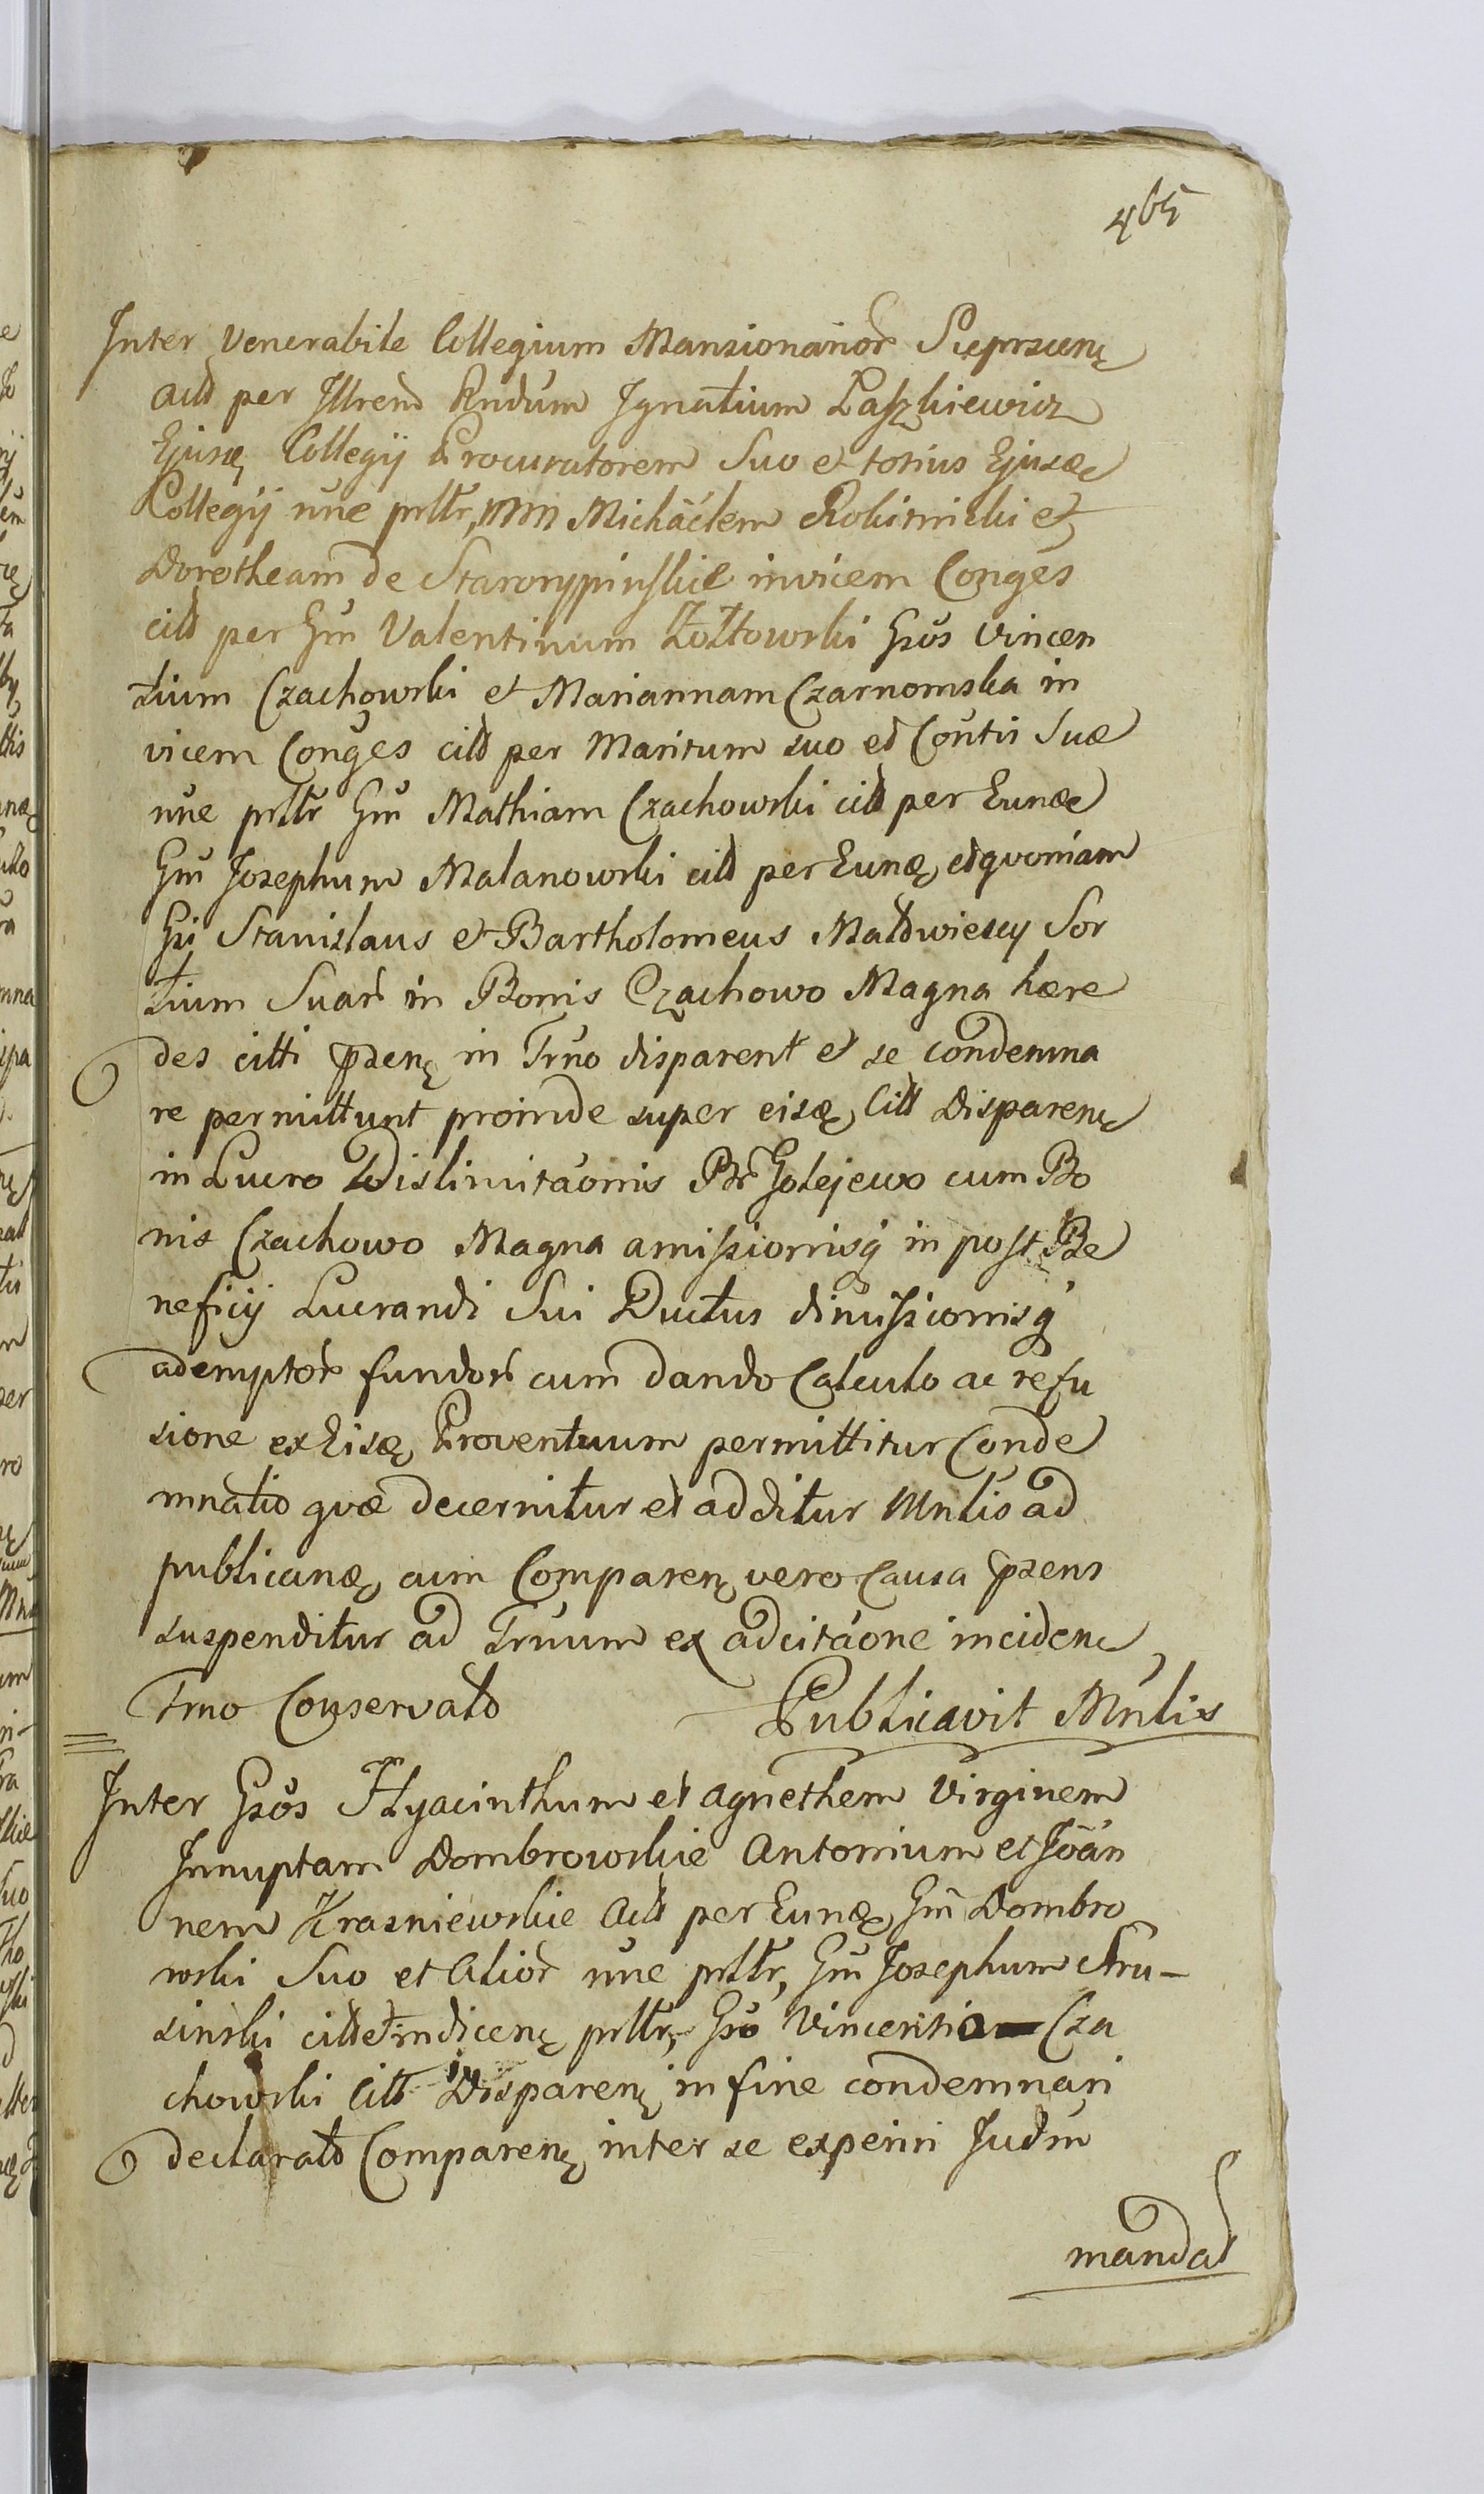 465
Inter Venerabile Collegium Mansionarior Sieprscenę
actd per Illrend Rndum Ignatium Łaszkiewicz
Ejusę Collegij Procuratorem Suo et totius Ejusdę
Collegij nne prltr, Mm Michaelem Rokitnicki et
Dorotheam de Starorypinskie invicem Conges
citd per Gm Valentinum Żołtowski Gsos Vincen
tium Czachowski et Mariannam Czarnomska in
vicem Conges citd per Maritum suo et Contis Suæ
nne prltr Gm Mathiam Czachowski citd per Eundę
Gm Josephum Malanowski citd per Eunę, et qvoniam
Gii Stanislaus et Bartholomeus Małowiescy Sor
tium Suar in Bonis Czachowo Magna hære
des citti pzenę in Trno disparent et se condemna
re permittunt proinde super eisę Citt Disparenę
in Lucro Dislimitaonis Br Golejewo cum Bo
nis Czachowo Magna amissionisq in post Be
neficij Lucrandi Sui Ductus dimissionisq
ademptor fundor cum dando Calculo ac refu
sione ex Eisę Proventuum permittitur Conde
mnatio qvæ decernitur et additur Mnlis ad
publicanę, cum Comparenę vero Causa pzens
suspenditur ad Trnum ex adcitaone incidenę
Trno Conservato
Publicavit Mnlis
Inter Gsos Hyacinthum et Agnethem Virginem
Innuptam Dombrowskie Antonium et Joan
nem Krasniewskie Actd per Eunę, Gm Dombro
wski Suo et Alior nne prltr, Gm Josephum Stru-
sinski citd et indicenę prltr, Gso Vincentio Cza
chowski Citt Disparenę in fine condemnari
declarato Comparenę inter se experiri Judm
mandat